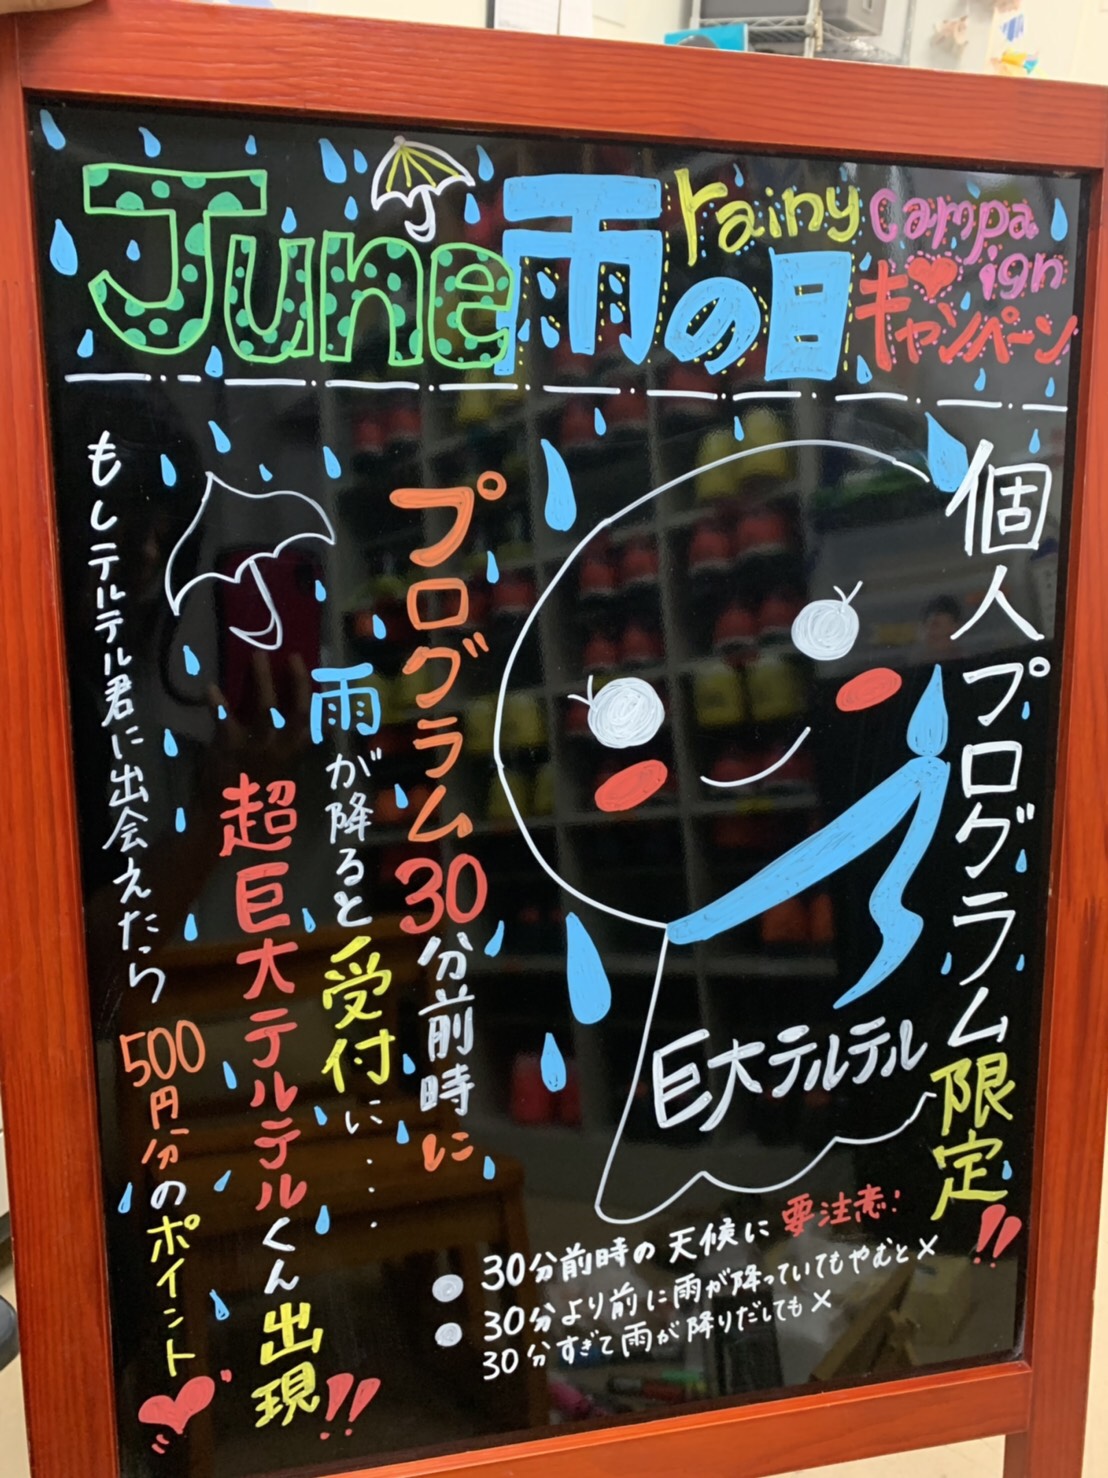 June雨の日
rainy
campaign
キャンペーン
個人プログラム限定!!
巨大テルテル
プログラム30分前時に
雨が降ると受付に....
超巨大テルテルくん出現!!
もしテルテル君に出会えたら
500円分のポイント
30分前時の天候に要注意!
30分より前に雨が降っていてもやむと×
30分すぎて雨が降りだしても×